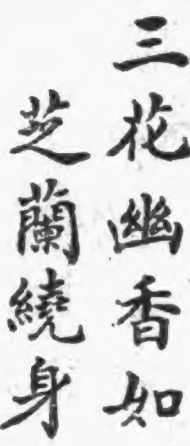 三花幽香如
芝蘭繞身